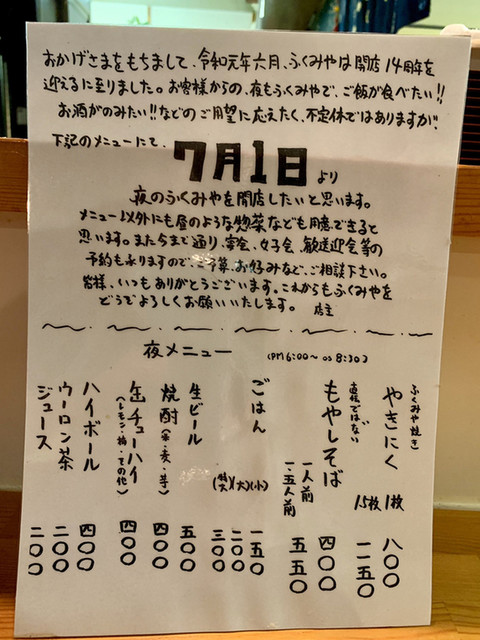 おかげさまをもちまして、令和元年六月、ふくみやは開店14周年を
迎えるに至りました。お客様からの、夜もふくみやで、ご飯が食べたい!!
お酒がのみたい!!などのご用望に応えたく、不定休ではありますが、
下記のメニューにて、
7月1日より
夜のふくみやを開店したいと思います。
メニュー以外にも昼のような惣菜なども用意できると
思います。また今まで通り、宴会、女子会、歓送迎会等の
予約も承りますので、ご予算、お好みなど、ご相談下さい。
皆様、いつもありがとうございます。これからもふくみやを
どうぞよろしくお願いいたします。 店主
夜メニュー (PM6:00〜OS8:30)
ふくみや焼き
やきにく 1枚 八〇〇
1.5枚 一一五〇
直伝ではない
もやしそば 一人前 四〇〇
一.五人前 五五〇
ごはん (小) 一五〇
(大) 二〇〇
(特) 三〇〇
生ビール 五〇〇
焼酎(米・麦・芋) 四〇〇
缶チューハイ 四〇〇
(レモン・梅・その他)
ハイボール 四〇〇
ウーロン茶 二〇〇
ジュース 二〇〇